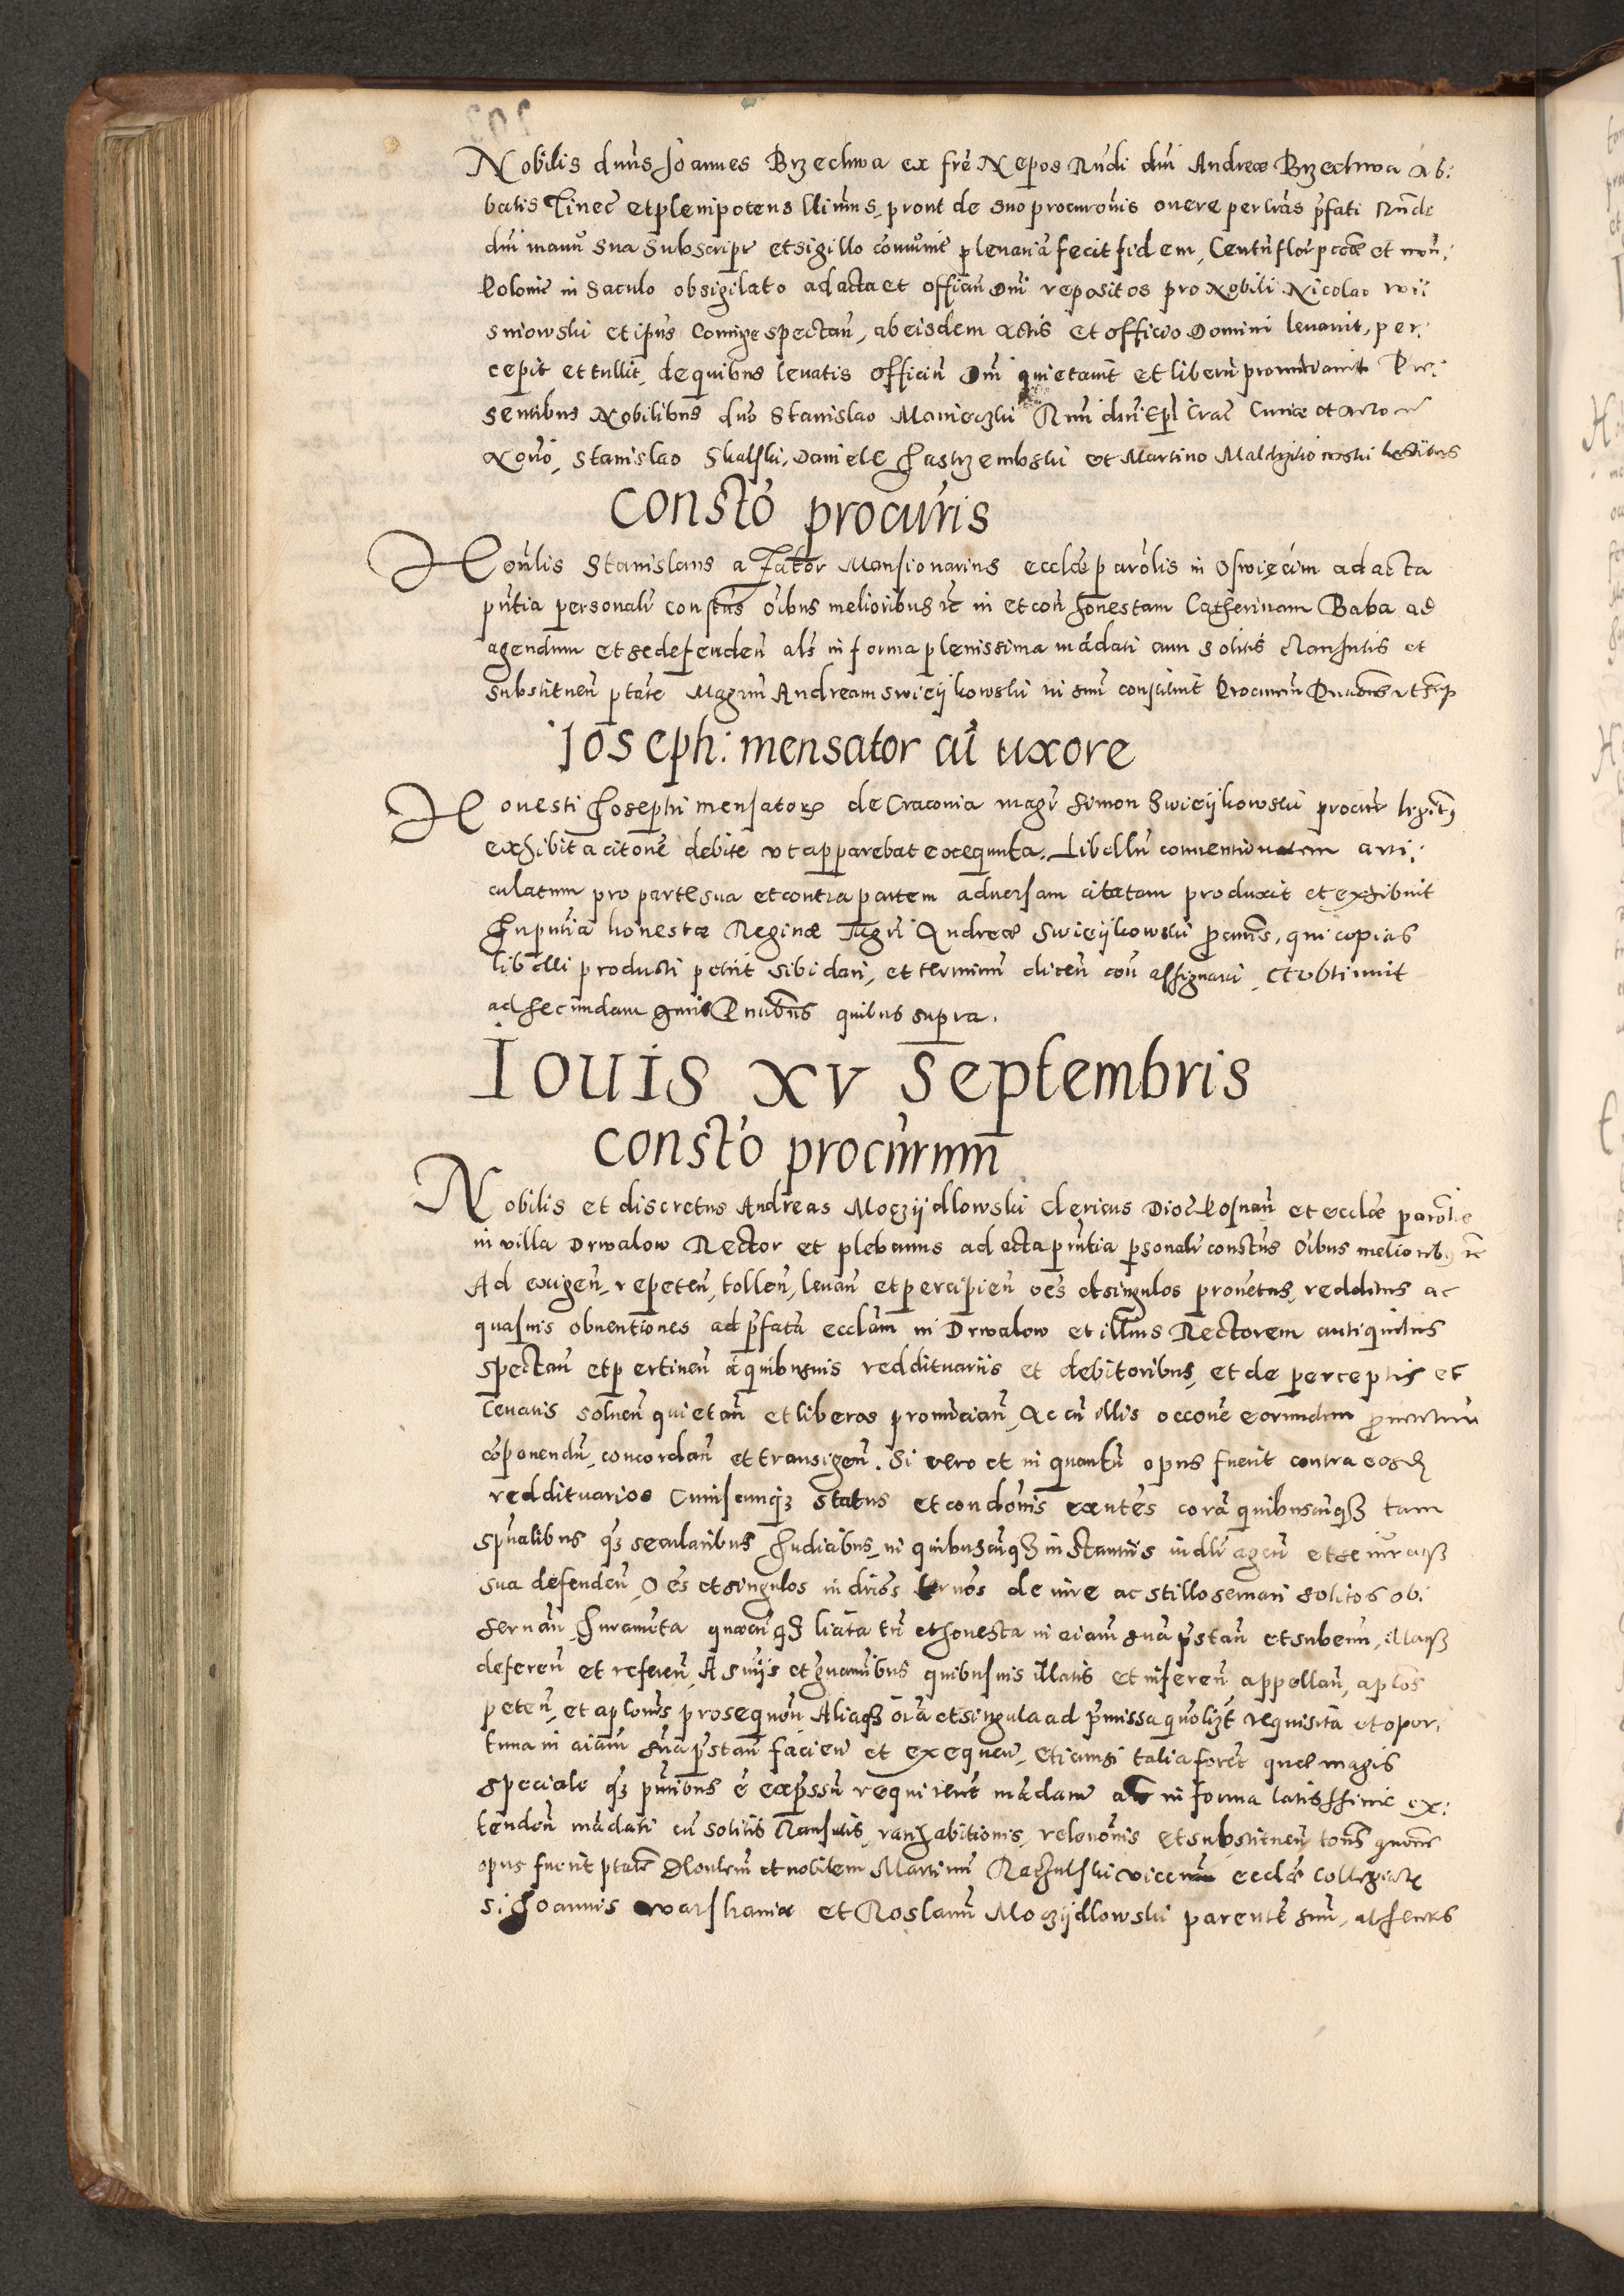 Nobilis dnus Joannes Brzechwa ex fre Nepos Rndi dni Andreae Brzechwa Ab:
batis Tinec et plenipotens llimus, prout de suo procuronis onere per lras pfati Rnde
dni manu sua subscript et sigillo comunit plenaria fecit fidem, Centu flor pcclae et mon:
Polonie in Saculo obsigilato ad acta et officiu Dni repositos pro Nobili Nicolao
sniowski et ipus spectan, ab eisdem actis et officio Domini levavit, per:
cepit et tullit, de quibus levatis officiu Dni quietavit et liberu pronuntiavit Pre:
sentibus Nobilibus dno Stanislao Manieczki Rmi dni Epi Crac Curiae et
Stanislao Skalski, Daniele Jastrzembski et Martino testibus
Consto procuris
Honlis Stanislaus a Zator Mansionarius ecclae parolis in Oswięcim ad acta
pntia personalr constus oibus melioribus etc in et con honestam Catherinam Baba ad
agendum et se defenden als in forma plenissima madati cum solitis clausulis et
substituen ptate Magrum Andream Swieijkowski in suu constituit Procurem Pntibus ut sup
Joseph: mensator cu uxore
Honesti Josephi mensatoris de Cracovia magr Simon Swieijkowski procur legitus
exhibita citone debite ut apparebat exequuta. Libellu conventionalem arti:
culatum pro parte sua et contra partem adversam citatam produxit et exhibuit
In pntia honestae Reginae Mgri Andreae Swieijkowski procuris, qui copias
libelli producti petiit sibi dari, et terminu dicen con assignari, et obtinuit
ad secundam Pntibus quibus supra.
Iouis XV Septembris
Consto procurum
Nobilis et discretus Andreas Moczijdlowski Clericus Dioc Posnan et ecclae parolis
in villa Drwalow Rector et plebanus ad acta pntia psonalr constus oibus meliorib etc
Ad exigen, repeten, tollen, levan et percipien oes et singulos provetus, redditus ac
quasvis obventiones ad pfata ecclam in Drwalow et illius Rectorem antiquitus
spectan et pertinen a quibusvis reddituariis et debitoribus, et de perceptis et
levatis solven quietan et liberos pronuncian, Ac cu illis occone eorundem proventuu
coponendu, concordan et transigen. Si vero et in quantu opus fuerit contra eosd
reddituarios Cuiuscunq status et condonis exntes cora quibuscuq tam
spualibus q secularibus Judicibus, in quibuscuq instantiis iudlr agen et se iuraq
sua defenden, Oes et singulos iudrios ternos de iure ac stillo servari solitos ob:
servan, Juramenta quaecuq licita tn et honesta in aiam sua pstan et subeun, illaq
deferen et referen, A sniis et gvaminibus quibusvis illatis et inferen appellan, aplos
peten, et aplonis prosequen Aliaq oia et singula ad pmissa quolizt requisita et opor:
tuna in aiam sua pstan facien et exequen, etiamsi talia foret quae magis
speciale q pntibus e expssu requireret madatu ac in forma latissime ex:
tenden madati cu solitis clausulis, ratihabitionis, relevonis et substituen
opus fuerit ptate Honlem et nobilem Martinu Raczulski ecclae Collegiatae
S. Joannis Warshaviae et Roslanu Moczijdlowski parente suu, absentes